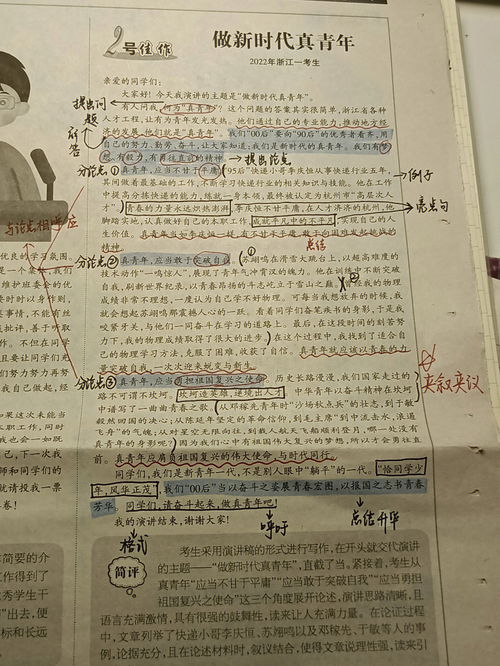 2号佳作
做新时代真青年
2022年浙江一考生
亲爱的同学们：
大家好！今天我演讲的主题是“做新时代真青年”。
有人问我，何为“真青年”？这个问题的答案其实很简单，浙江省各种
人才工程，让有为青年发光发热。他们通过自己的专业能力，推动地方经
济的发展，他们就是“真青年”。我们“00后”要向“90后”的优秀者看齐，用
自己的努力、勤劳、奋斗，让大家知道：我们是新时代的真青年。我们有梦
想，有毅力，有勇往直前的精神。
真青年，应当不甘于平庸。“95后”快递小哥李庆恒从事快递行业五年，
其间做着最基础的工作，不断学习快递行业的相关知识与技能。他在工作
中提高分拣快递的能力，练就一身本领，最终被认定为杭州市“高层次人
才”。青春的力量永远炽热澎湃，李庆恒不甘平庸，在人才济济的杭州，他
脚踏实地，认真做好自己的本职工作，成就平凡中的不平凡，实现自己的人
生价值。真青年当如李庆恒一样，有不甘于平庸，敢于向困难发起挑战的
精神。
真青年，应当敢于突破自我。苏翊鸣在滑雪大跳台上，以超高难度的
技术动作“一鸣惊人”，展现了青年气冲霄汉的魄力。他在训练中不断突破
自我，刷新世界纪录，以青春昂扬的斗志屹立于雪山之巅。曾经我的物理
成绩非常不理想，一度认为自己学不好物理。可每当我想放弃的时候，我
就会想起苏翊鸣那震撼人心的一跃。看着同学们奋笔疾书的身影，于是我
咬紧牙关，与他们一同奋斗在学习的道路上。最后，在这段时间的刻苦努
力下，我的物理成绩取得了很大的进步。在这个过程中，我找到了适合自
己的物理学习方法，克服了困难，收获了自信。真青年就应该以青春的力
量突破自我，一次次迎来蜕变与新生。
真青年，应当勇担祖国复兴之使命。历史长路漫漫，我们国家走过的
路不可谓不坎坷。坎坷造英雄，逆境出人才，中华青年以奋斗精神在坎坷
中谱写了一曲曲青春之歌。从邓稼先青年时“沙场秋点兵”的壮志，到于敏
毅然回国的决心；从陈延年坚定的革命信仰，到毛主席“到中流击水，浪遏
飞舟”的气魄；从对星空无限向往，到载人航天飞船顺利登月，哪一处没有
真青年的身影呢？因为我们心中有祖国伟大复兴的梦想，所以才会勇往直
前。真青年应肩负祖国复兴的伟大使命，与时代同行。
同学们，我们是新青年一代，不是别人眼中“躺平”的一代。“恰同学少
年，风华正茂”，我们“00后”当以奋斗之姿展青春宏图，以报国之志书青春
芳华。同学们，请奋斗起来，做真青年吧！
我的演讲结束，谢谢大家！
提出问题
解答
提出论点
分论点①
例子
亮点句
总结
分论点②
分论点③
夹叙夹议
格式
呼吁
总结升华
与论点相呼应
简评
考生采用演讲稿的形式进行写作，在开头就交代演讲
的主题——“做新时代真青年”，直截了当。紧接着，考生从
真青年“应当不甘于平庸”“应当敢于突破自我”“应当勇担
祖国复兴之使命”这三个角度展开论述，演讲思路清晰，且
语言充满激情，具有很强的鼓舞性，读来让人充满力量。在论证过程
中，文章列举了快递小哥李庆恒、苏翊鸣以及邓稼先、于敏等人的事
例，论据充分，且在论述材料时，叙议结合，使得文章说理性强，读来引